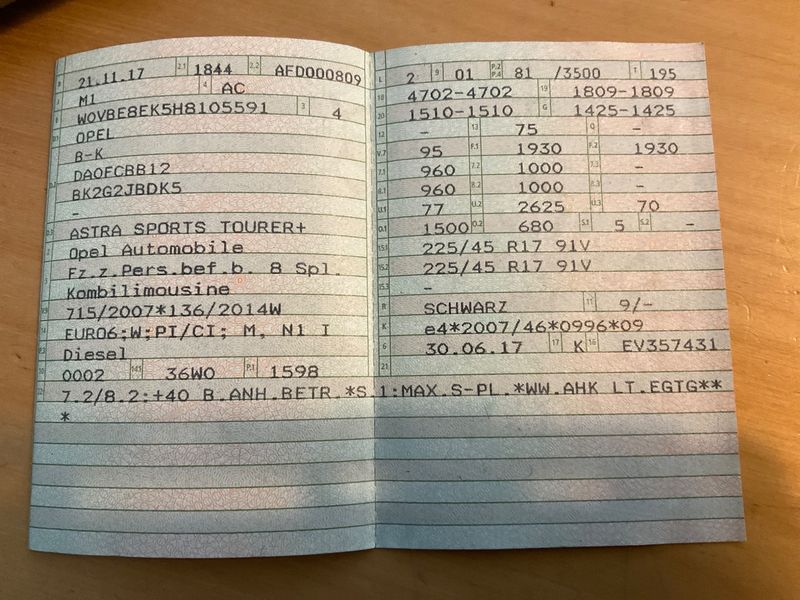 B 21.11.17 2.1 1844 2.2 AFD000809
J M1 4 AC
E W0VBE8EK5H8105591 3 4
D.1 OPEL
B-K
DAOFCBB12
D.2 BK2G2JBDK5
-
D.3 ASTRA SPORTS TOURER+
2 Opel Automobile
5 Fz.z.Pers.bef.b. 8 Spl.
Kombilimousine
V.9 715/2007*136/2014W
14 EURO6;W;PI/CI; M, N1 I
P.3 Diesel
10 0002 14.1 36W0 P.1 1598
L 2 9 01 P.2 P.4 81 /3500 T 195
18 4702-4702 19 1809-1809
20 1510-1510 G 1425-1425
12 - 13 75 Q -
V.7 95 F.1 1930 F.2 1930
7.1 960 7.2 1000 7.3 -
8.1 960 8.2 1000 8.3 -
U.1 77 U.2 2625 U.3 70
O.1 1500 O.2 680 S.1 5 S.2 -
15.1 225/45 R17 91V
15.2 225/45 R17 91V
15.3 -
R SCHWARZ 11 9/-
K e4*2007/46*0996*09
6 30.06.17 17 K 16 EV357431
21
22 7.2/8.2:+40 B.ANH.BETR.*S.1:MAX.S-PL.*WW.AHK LT.EGTG**
*